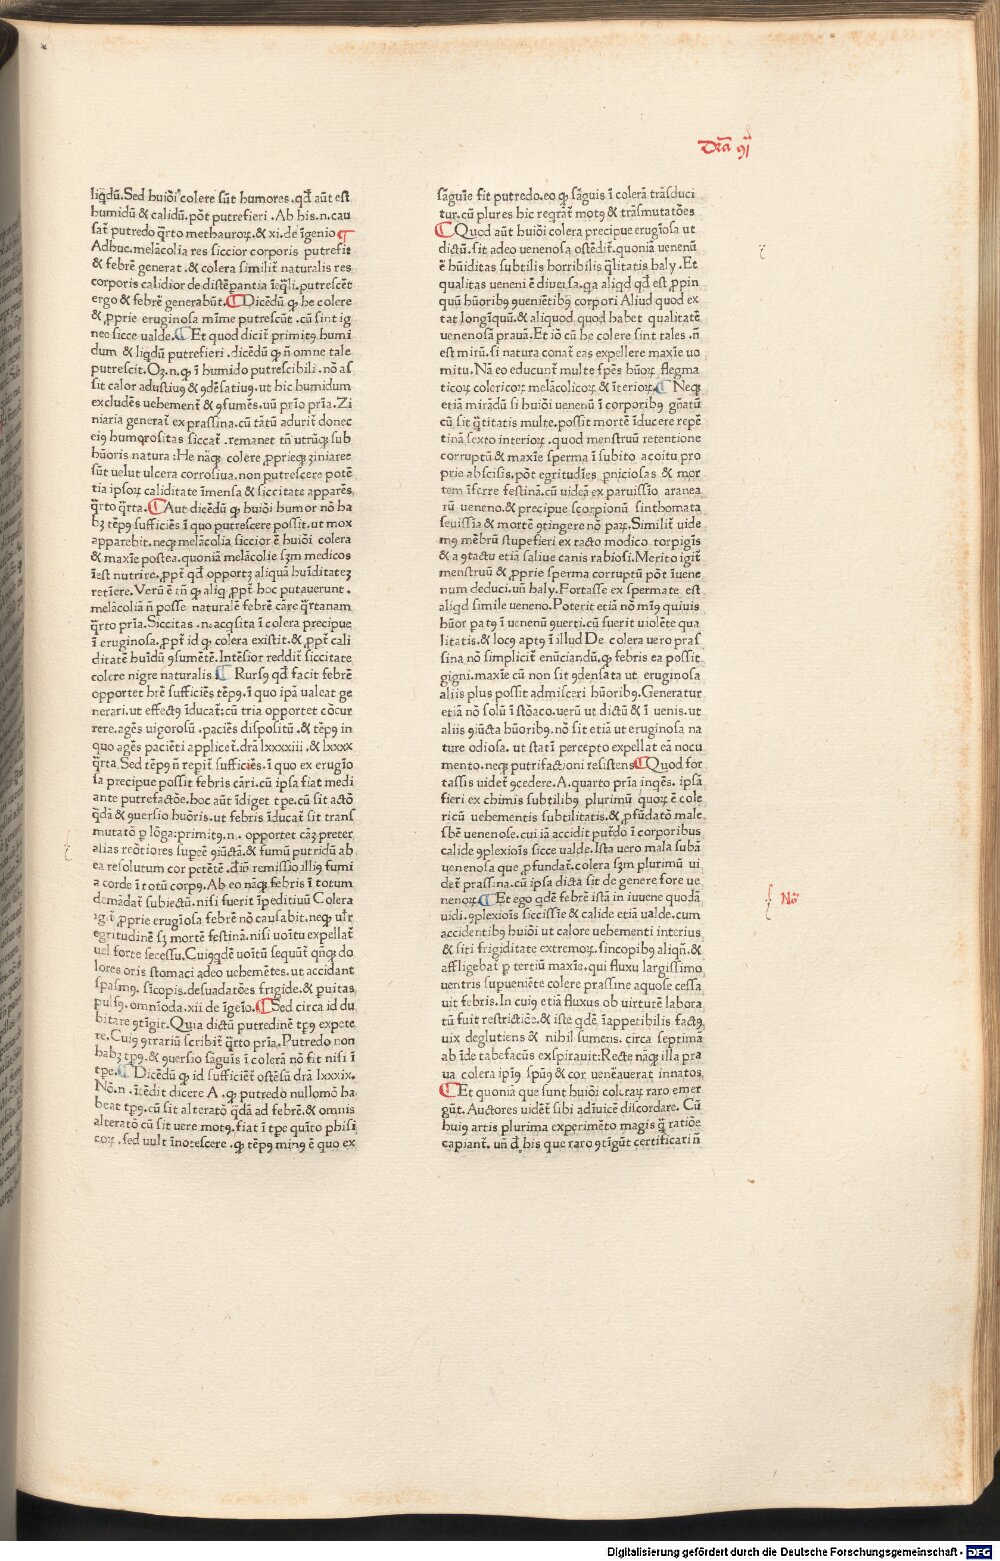 Dr̄a 91
liq̄dū. Sed huiōi colere sūt humores. qd̄ aūt est
humidū & calidū. pōt putrefieri. Ab his. n. cau
sat̄ putredo q̄rto methauroꝝ. & xi. de īgenio
Adhuc. melācolia res siccior corporis putrefit
& febrē generat. & colera similit̄ naturalis res
corporis calidior de distēpantia īeq̄li. putrescēt
ergo & febrē generabūt. Dicēdū ꝙ he colere
& ꝓprie eruginosa mīme putrescūt. cū sint ig
nee sicce ualde. Et quod dicit̄ primitꝰ humi
dum & liq̄dū putrefieri. dicēdū ꝙ n̄ omne tale
putrescit. Oꝫ. n. ꝙ ī humido putrescibili. nō as
sit calor adustiuꝰ & ꝯdēsatiuꝰ. ut hic humidum
excludēs uehement̄ & ꝯsumēs. uū prīo prīa. Zi
niaria generat̄ ex prassina. cū tātū adurit̄ donec
eiꝰ humorositas siccat̄. remanet tn̄ utrūqꝫ sub
hūoris natura: He nāqꝫ colere ꝓprieqꝫ ziniaree
sūt uelut ulcera corrosiua. non putrescere potē
tia ipsoꝝ caliditate īmensa & siccitate apparēs
q̄rto q̄rta. Aut dicēdū ꝙ huiōi humor nō ha
bꝫ tēpꝰ sufficiēs ī quo putrescere possit. ut mox
apparebit. neqꝫ melācolia siccior ē huiōi colera
& maxīe postea. quoniā melācolie sꝫm medicos
īest nutrire. ꝓpt̄ qd̄ opportꝫ aliquā huīditatēꝫ
retīere. Verū ē tn̄ ꝙ aliq̄ ꝓpt̄ hoc putauerunt.
melācoliā n̄ posse naturalē febrē cāre q̄rtanam
q̄rto prīa. Siccitas. n. acq̄sita ī colera precipue
ī eruginosa. ꝓpt̄ id ꝙ colera existit. & ꝓpt̄ cali
ditatē huīdū ꝯsumētē. Intēsior reddit̄ siccitate
colere nigre naturalis Rursꝰ qd̄ facit febrē
opportet hr̄e sufficiēs tēpꝰ. ī quo ipā ualeat ge
nerari. ut effectꝰ īducat̄: cū tria opportet cōcur
rere. agēs uigorosū. paciēs dispositū. & tēpꝰ in
quo agēs paciēti applicet̄. dr̄a lxxxxiii. & lxxxx
q̄rta. Sed tēpꝰ n̄ reperit̄ sufficiēs. ī quo ex erugīo
sa precipue possit febris cāri. cū ipsa fiat medi
ante putrefactōe. hoc aūt īdiget tp̄e. cū sit actō
q̄dā & ꝯuersio hūoris. ut febris īducat̄ sit trans
mutatō ꝑ lōga: primitꝰ. n. opportet cāꝫ preter
alias reōtiores supeē ꝯiūctā. & fumū putridū ab
ea resolutum cor petētē. dīn̄ remissio illiꝰ fumi
a corde ī totū corpꝰ. Ab eo nāqꝫ febris ī totum
demādat̄ subiectū. nisi fuerit īpeditiuū Colera
igit̄ ꝓprie erugīosa febrē nō causabit. neqꝫ ul̄r
egritudinē sꝫ mortē festinā. nisi uoītu expellat̄
uel forte secessu. Cuiqq̄dē uoītū sequūt̄ qn̄qꝫ do
lores oris stomaci adeo uehemētes. ut accidant
spasmꝰ. sīcopis. desuadatōes frigide. & puitas
pulsꝰ. omnīoda. xii de īgeīo. Sed circa id du
bitare ꝯtīgit. Quia dictū putredinē tꝑꝰ expete
re. Cuiꝰ ꝯtrariū scribit̄ q̄rto prīa. Putredo non
habꝫ tꝑꝰ. & ꝯuersio sāguīs ī colerā nō fit nisi ī
tp̄e. Dicēdū ꝙ id sufficiēt̄ ostēsū dr̄a lxxxix.
Nō. n. ītēdit dicere A. ꝙ putredo nullomō ha
beat tꝑꝰ. cū sit alteratō q̄dā ad febrē. & omnis
alteratō cū sit uere motꝰ. fiat ī tp̄e quīto phisi
coꝝ. sed uult īnotescere. ꝙ tēpꝰ minꝰ ē quo ex
sāguīe fit putredo. eo ꝙ sāguis ī colerā trāsduci
tur. cū plures hic reqrāt̄ motꝰ & trāsmutatōes
Quod aūt huiōi colera precipue erugīosa ut
dictū. sit adeo uenenosa ostēdit̄. quoniā uenenū
ē hūiditas subtilis horribilis q̄litatis haly. Et
qualitas ueneni ē diuersa. qa aliqd qd̄ est ꝓpin
quū hūoribꝰ ꝯueniētibꝰ corpori Aliud quod ex
tat longīquū. & aliquod quod habet qualitatē
uenenosā prauā. Et iō cū he colere sint tales. n̄
est mirū. si natura conat̄ eas expellere maxīe uo
mitu. Nā eo educunt̄ multe spēs hūoꝝ flegma
ticoꝝ colericoꝝ melācolicoꝝ & īterioꝝ. Neqꝫ
etiā mirādū si huiōi uenenū ī corporibꝰ gn̄atū
cū sit q̄titatis multe. possit mortē īducere repē
tinā sexto interioꝝ. quod menstruū retentione
corruptū & maxīe sperma ī subito acoitu pro
prie abscisis. pōt egritudīes pniciosas & mor
tem īferre festinā. cū uideā ex paruissīo aranea
rū ueneno. & precipue scorpionū sinthomata
seuissīa & mortē ꝯtingere nō paꝝ. Similit̄ uide
mꝰ mēbrū stupefieri ex tacto modico torpigīs
& a ꝯtactu etiā saliue canis rabiosi. Merito igit̄
menstruū & ꝓprie sperma corruptū pōt īuene
num deduci. un̄ haly. Fortasse ex spermate est
aliqd simile ueneno. Poterit etiā nō mīꝰ quiuis
hūor patꝰ ī uenenū ꝯuerti. cū fuerit uiolēte qua
litatis. & locꝰ aptꝰ ī illud De colera uero pras
sina nō simplicit̄ enūciandū. ꝙ febris ea possit
gigni. maxīe cū non sit ꝯdensata ut eruginosa
aliis plus possit admisceri hūoribꝰ. Generatur
etiā nō solū ī stōaco. uerū ut dictū & ī uenis. ut
aliis ꝯiūcta hūoribꝰ. nō sit etiā ut eruginosa na
ture odiosa. ut statī percepto expellat eā nocu
mento. neqꝫ putrifactioni resistens Quod for
tassis uidet̄ ꝯcedere. A. quarto prīa ingēs. ipsā
fieri ex chimis subtilibꝰ plurimū quoꝝ ē cole
ricū uehementis subtilitatis. & ꝓfūdatō male
sbē uenenose. cui iā accidit put̄do ī corporibus
calide ꝯplexiōis sicce ualde. Ista uero mala subā
uenenosa que ꝓfundat̄. colera sꝫm plurimū ui
det̄ prassina. cū ipsa dicta sit de genere fore ue
nenoꝝ. Et ego qdē febrē istā in iuuene quodā
uidi. ꝯplexiōis siccissīe & calide etiā ualde. cum
accidentibꝰ huiōi ut calore uehementi interius
& siti frigiditate extremoꝝ. sincopibꝰ aliqn̄. &
affligebat̄ ꝑ tertiū maxīe. qui fluxu largissimo
uentris supueniēte colere prassine aquose cessa
uit febris. In cuiꝰ etiā fluxus ob uirtutē labora
tū fuit restrictiōe. & iste qdē īappetibilis factꝰ
uix deglutiens & nihil sumens. circa septima
ab īde tabefacūs exspirauit: Recte nāqꝫ illa pra
ua colera ipīꝰ spūꝰ & cor uenēauerat innatos
Et quoniā que sunt huiōi coleraꝝ raro emer
gūt. Auctores uidēt̄ sibi adīuicē discordare. Cū
huiꝰ artis plurima experimēto magis q̄ ratiōe
capiant̄. un̄ d̄ his que raro ꝯtīgūt certificari n̄
No
Digitalisierung gefördert durch die Deutsche Forschungsgemeinschaft - DFG